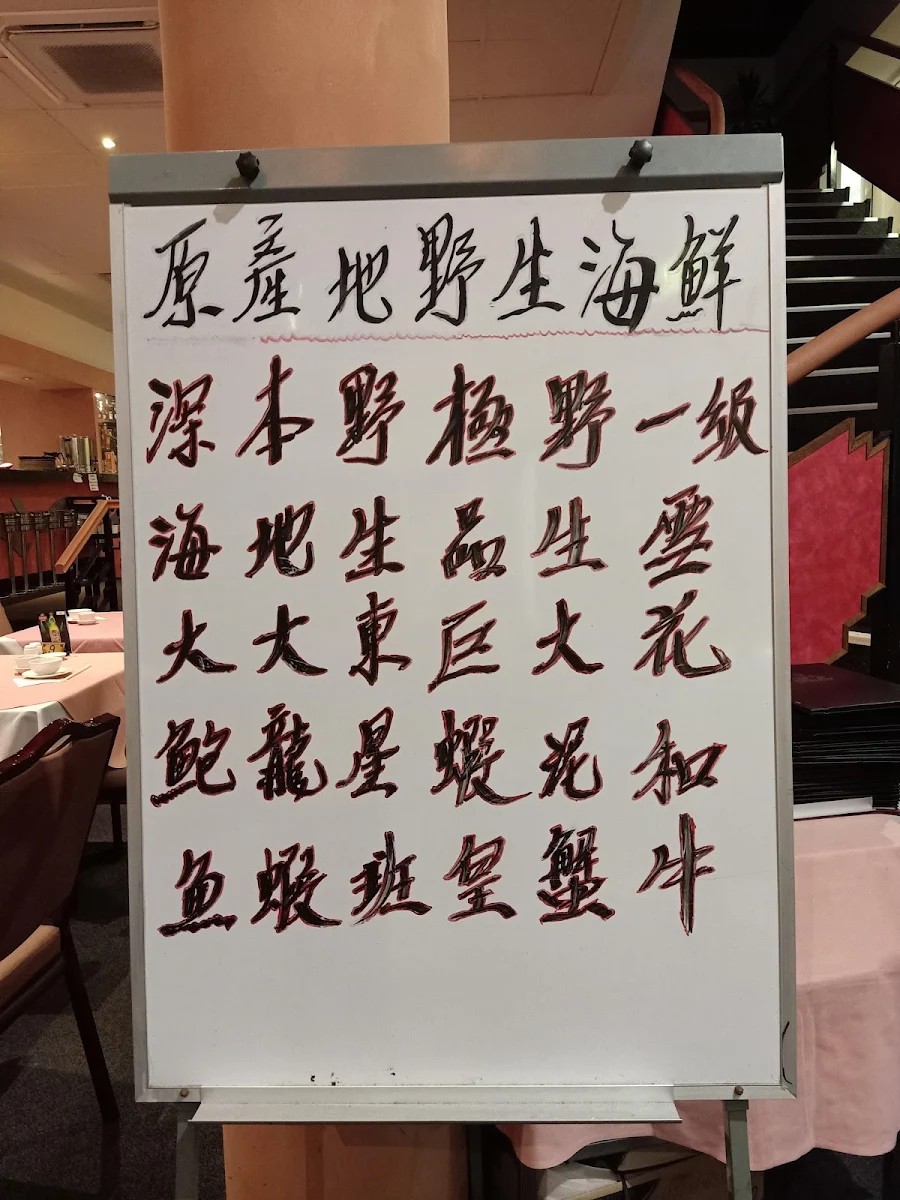 原產地野生海鮮
深海大鮑魚
本地大龍蝦
野生東星班
極品巨蝦皇
野生大泥蟹
一級雪花和牛
9